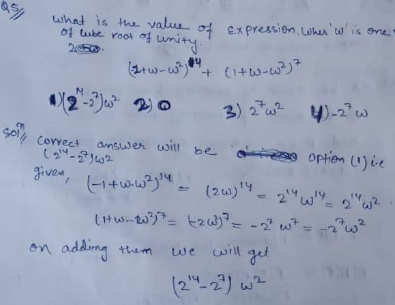 Q5// what is the value of expression. when 'w' is one
of cube root of unity.
(2+w-w²)¹⁴ + (1+w-w²)⁷
1) (2¹⁴-2⁷)w² 2) 0 3) 2⁷w² 4) -2⁷w
Solⁿ// correct answer will be option (1) i.e
(2¹⁴-2⁷)w2
given, (-1+w-w²)¹⁴ = (2w)¹⁴ = 2¹⁴w¹⁴ = 2¹⁴w²
(1+w-w²)⁷ = (-2w²)⁷ = -2⁷w⁷ = -2⁷w²
on adding them we will get
(2¹⁴-2⁷) w²